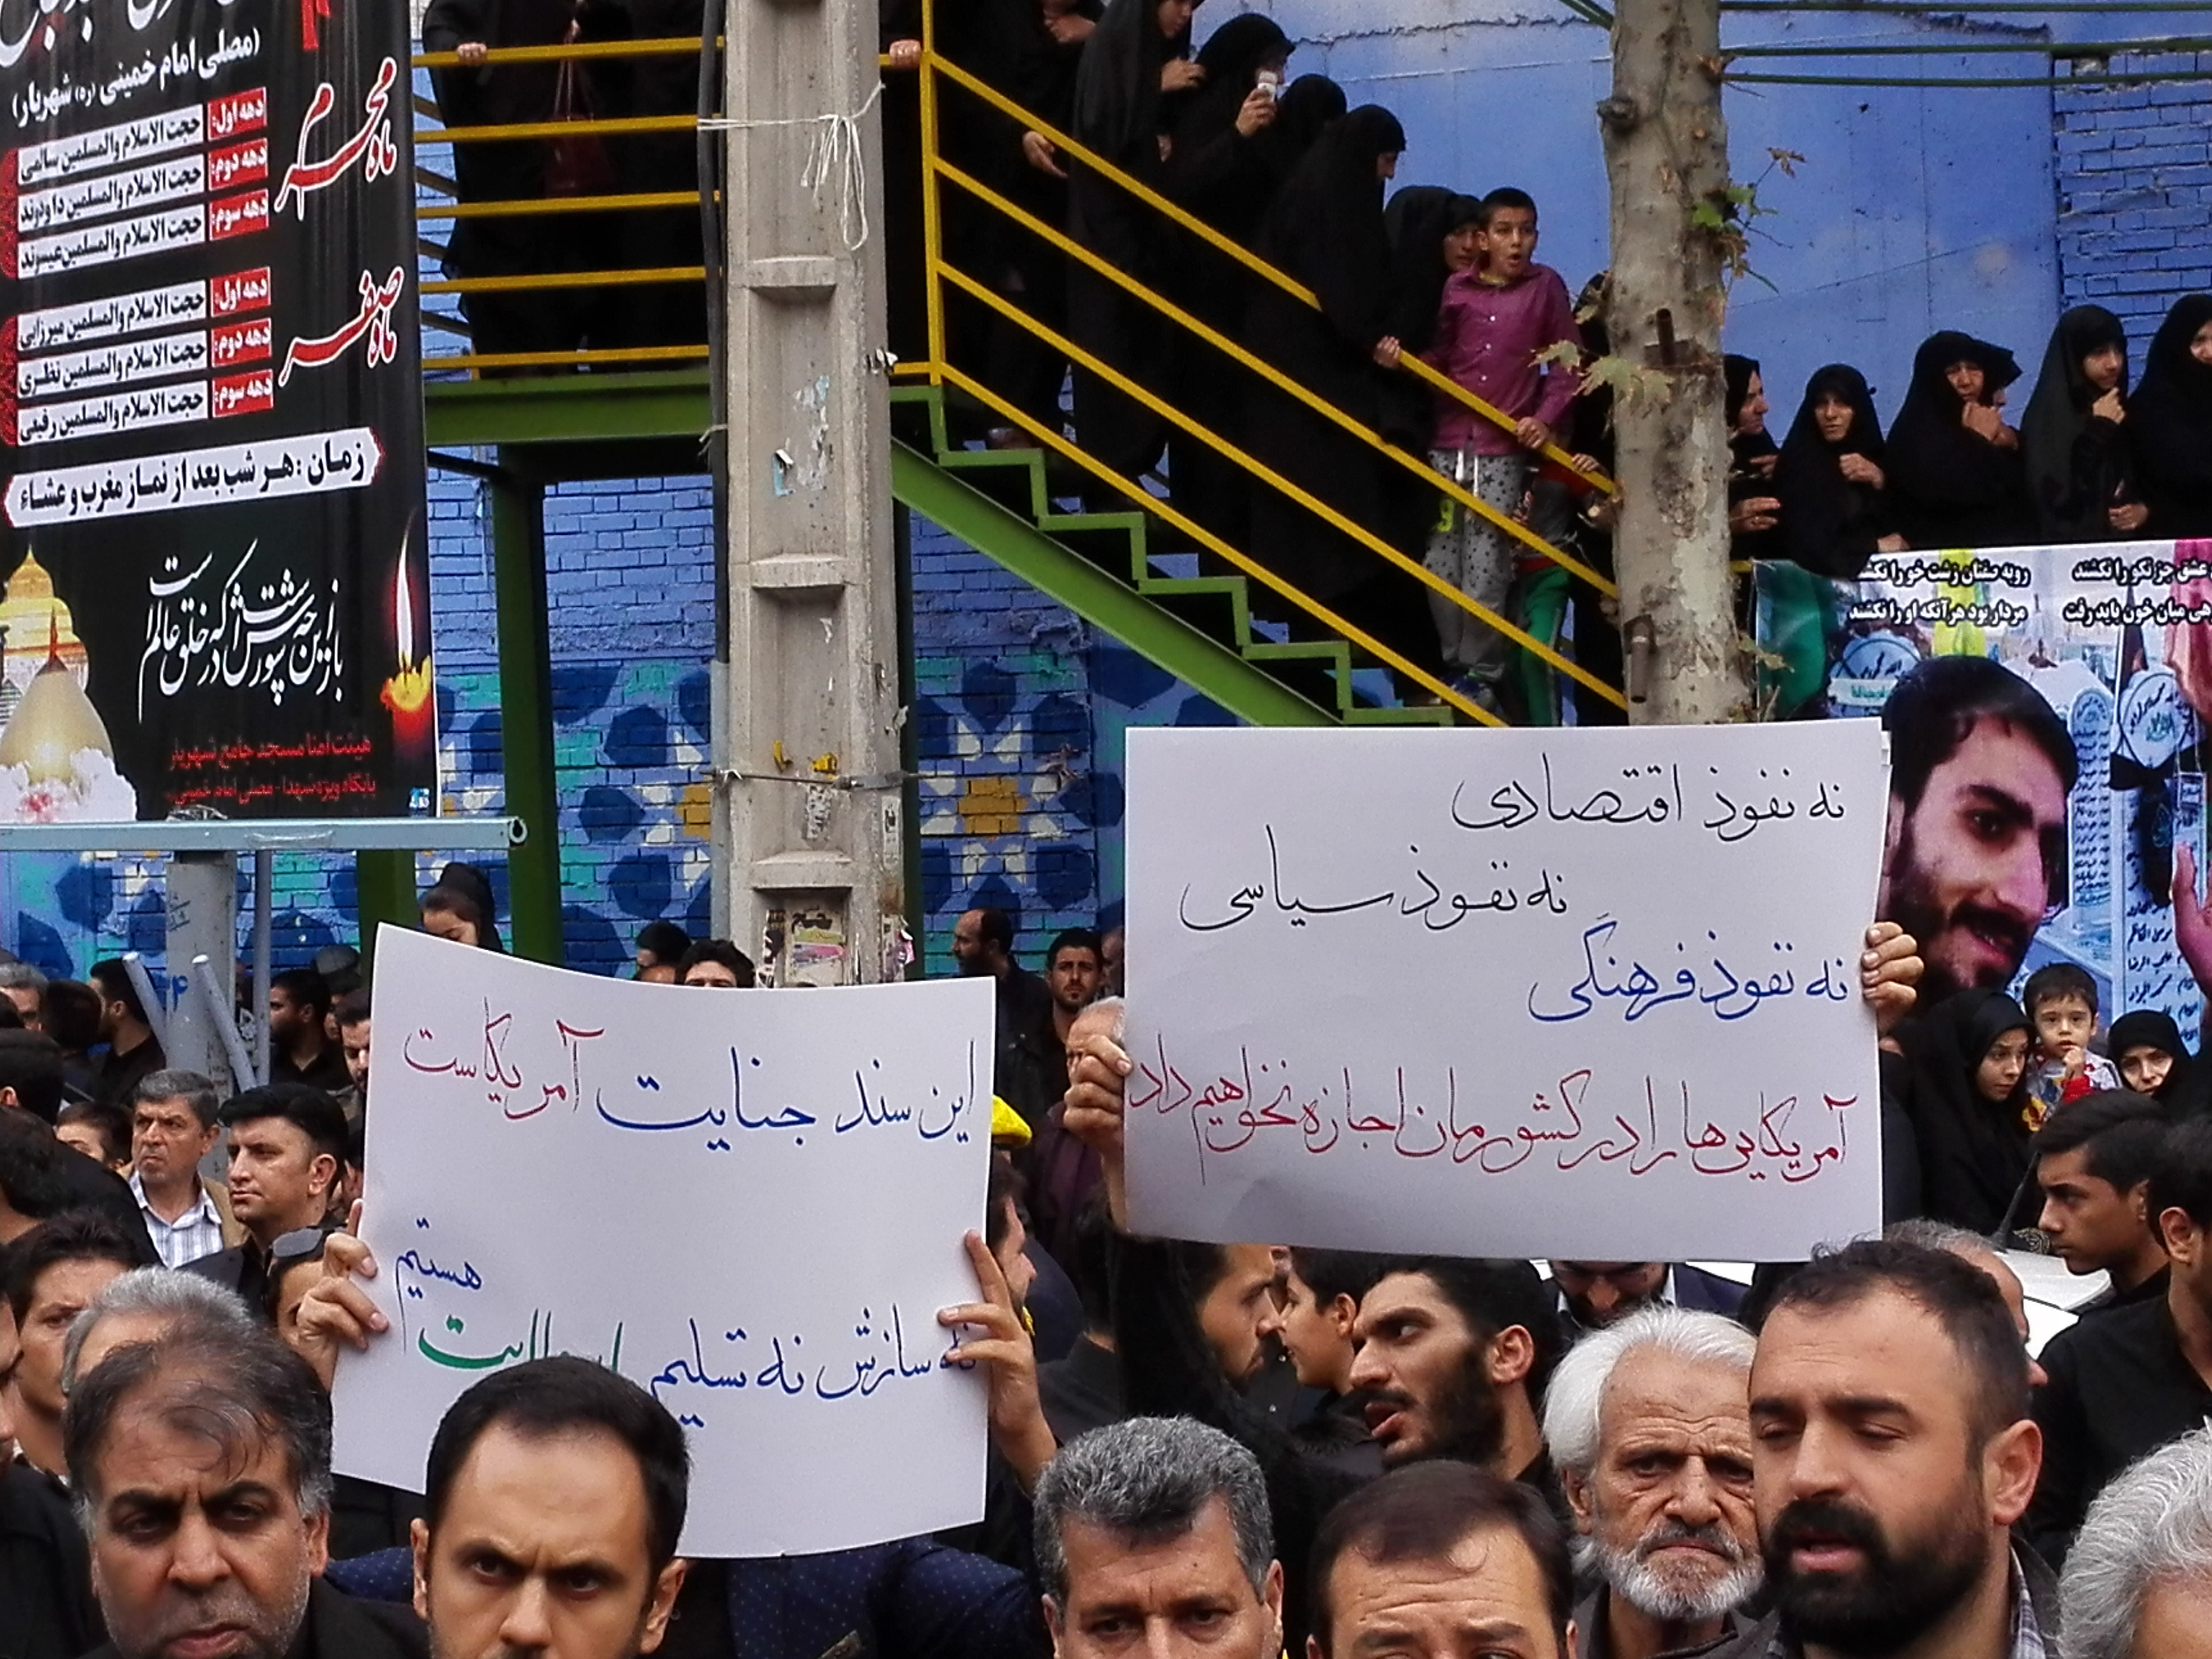 (مصلی امام خمینی (ره) شهریار)
ماه محرم
دهه اول: حجت الاسلام والمسلمین سالمی
دهه دوم: حجت الاسلام والمسلمین داودزند
دهه سوم: حجت الاسلام والمسلمین
ماه صفر
دهه اول: حجت الاسلام والمسلمین میرزایی
دهه دوم: حجت الاسلام والمسلمین نظری
دهه سوم: حجت الاسلام والمسلمین رفیعی
زمان: هر شب بعد از نماز مغرب و عشاء
باز این چه شورش است که در خلق عالم است
هیئت امنا مسجد جامع شهریار
پایگاه ویژه شهدا - مصلی امام خمینی
عشق جز نکو را نکشند
روبه صفتان زشت خو را نکشند
میان خون باید رفت
مردار بود هر آنکه او را نکشند
نه نفوذ اقتصادی
نه نفوذ سیاسی
نه نفوذ فرهنگی
آمریکایی ها را در کشورمان اجازه نخواهیم داد
این سند جنایت آمریکاست
نه سازش نه تسلیم
هستیم